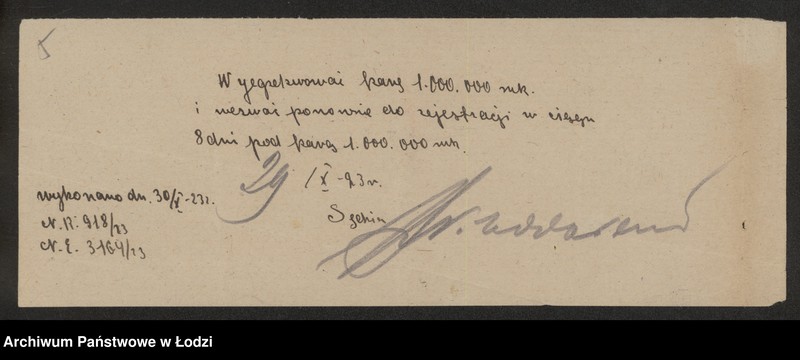 5
Wyegzekwować karę 1.000.000 mk.
i wezwać ponownie do rejestracji w ciągu
8 dni pod karą 1.000.000 mk.
29 /X -23 r.
wykonano dn. 30/X-23 r.
N.R. 918/23
N.E. 3164/23
Archiwum Państwowe w Łodzi